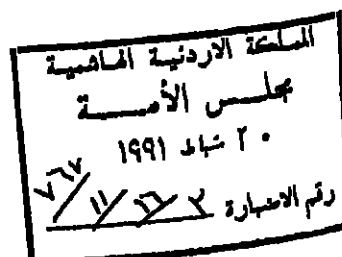 المملكة الاردنية الهاشمية
مجلس الأمــة
٢٠ شباط ١٩٩١
رقم الاضبارة ٣/١٦/١١/٧٦٧